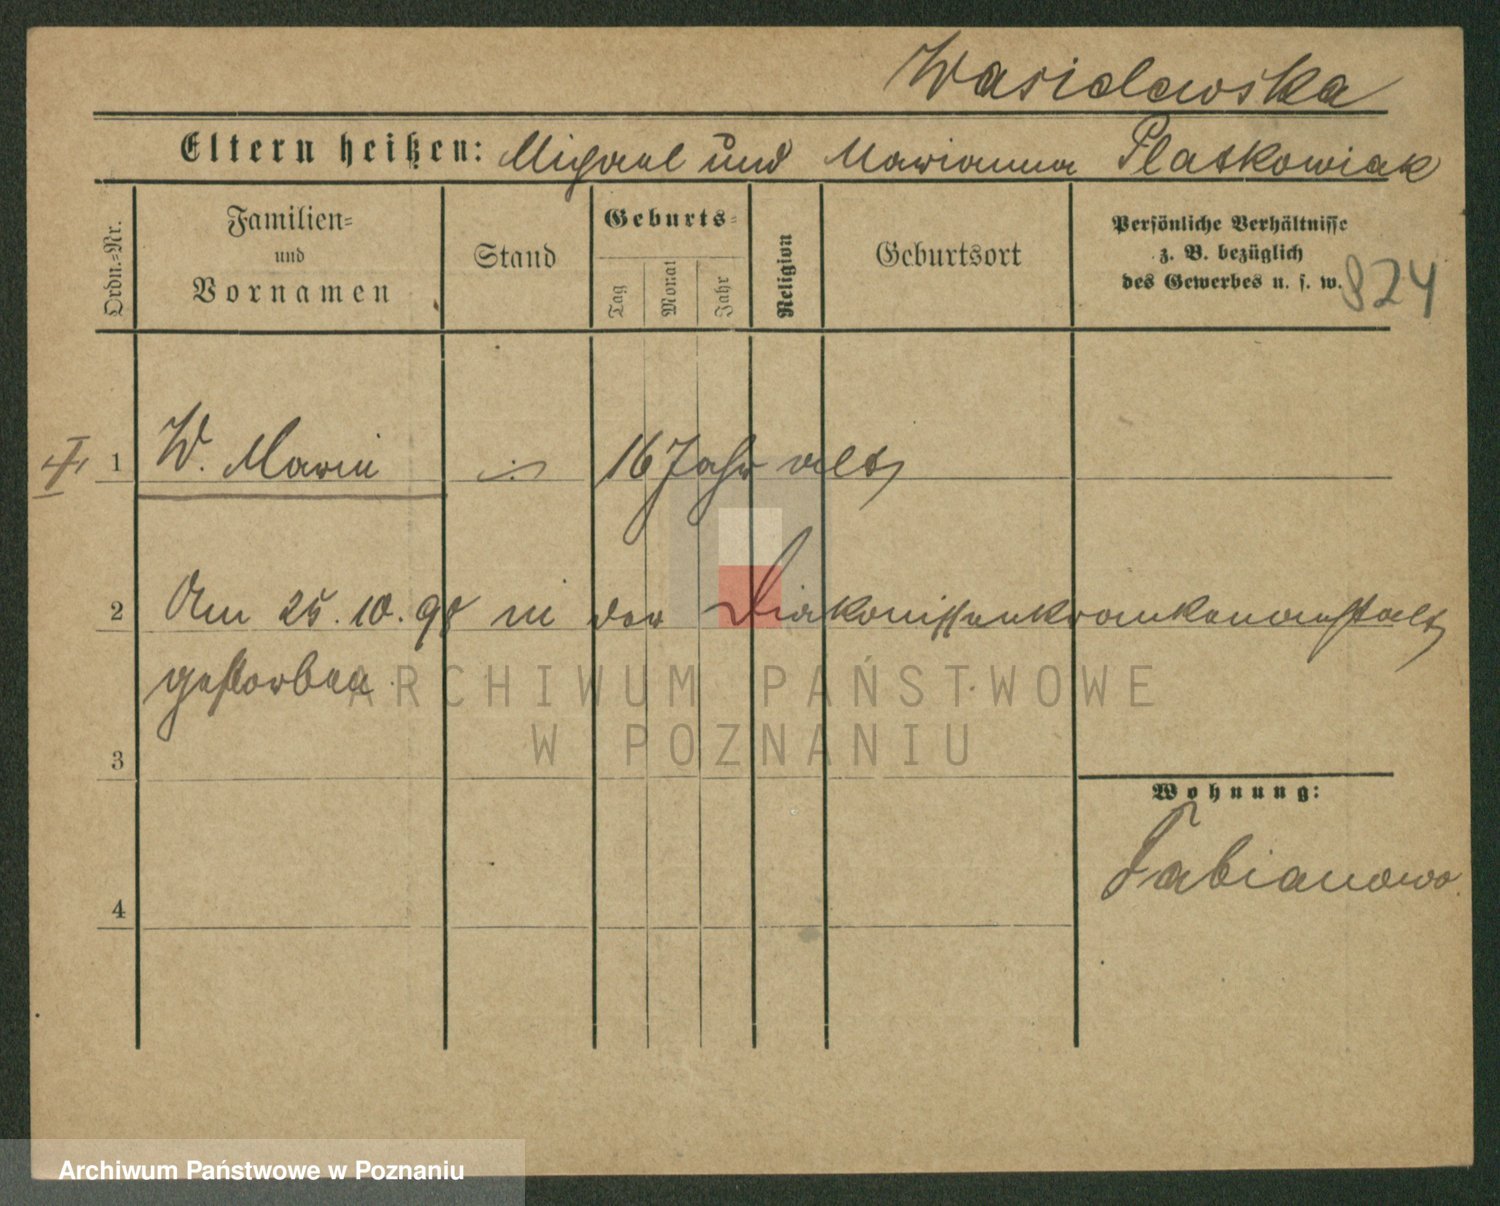 Wasielewska
Eltern heißen: Michael und Marianna Platkowiak
Ordn.-Nr.
Familien-
und
Vornamen
Stand
Geburts-
Tag
Monat
Jahr
Religion
Geburtsort
Persönliche Verhältnisse
z. B. bezüglich
des Gewerbes u. s. w.
824
1 W. Marie ·/· 16 Jahr alt,
2 Am 25.10.98 in der Diakonissenkrankenanstalt
gestorben.
3
Wohnung:
Fabianowo.
4
ARCHIWUM PAŃSTWOWE
W POZNANIU
Archiwum Państwowe w Poznaniu